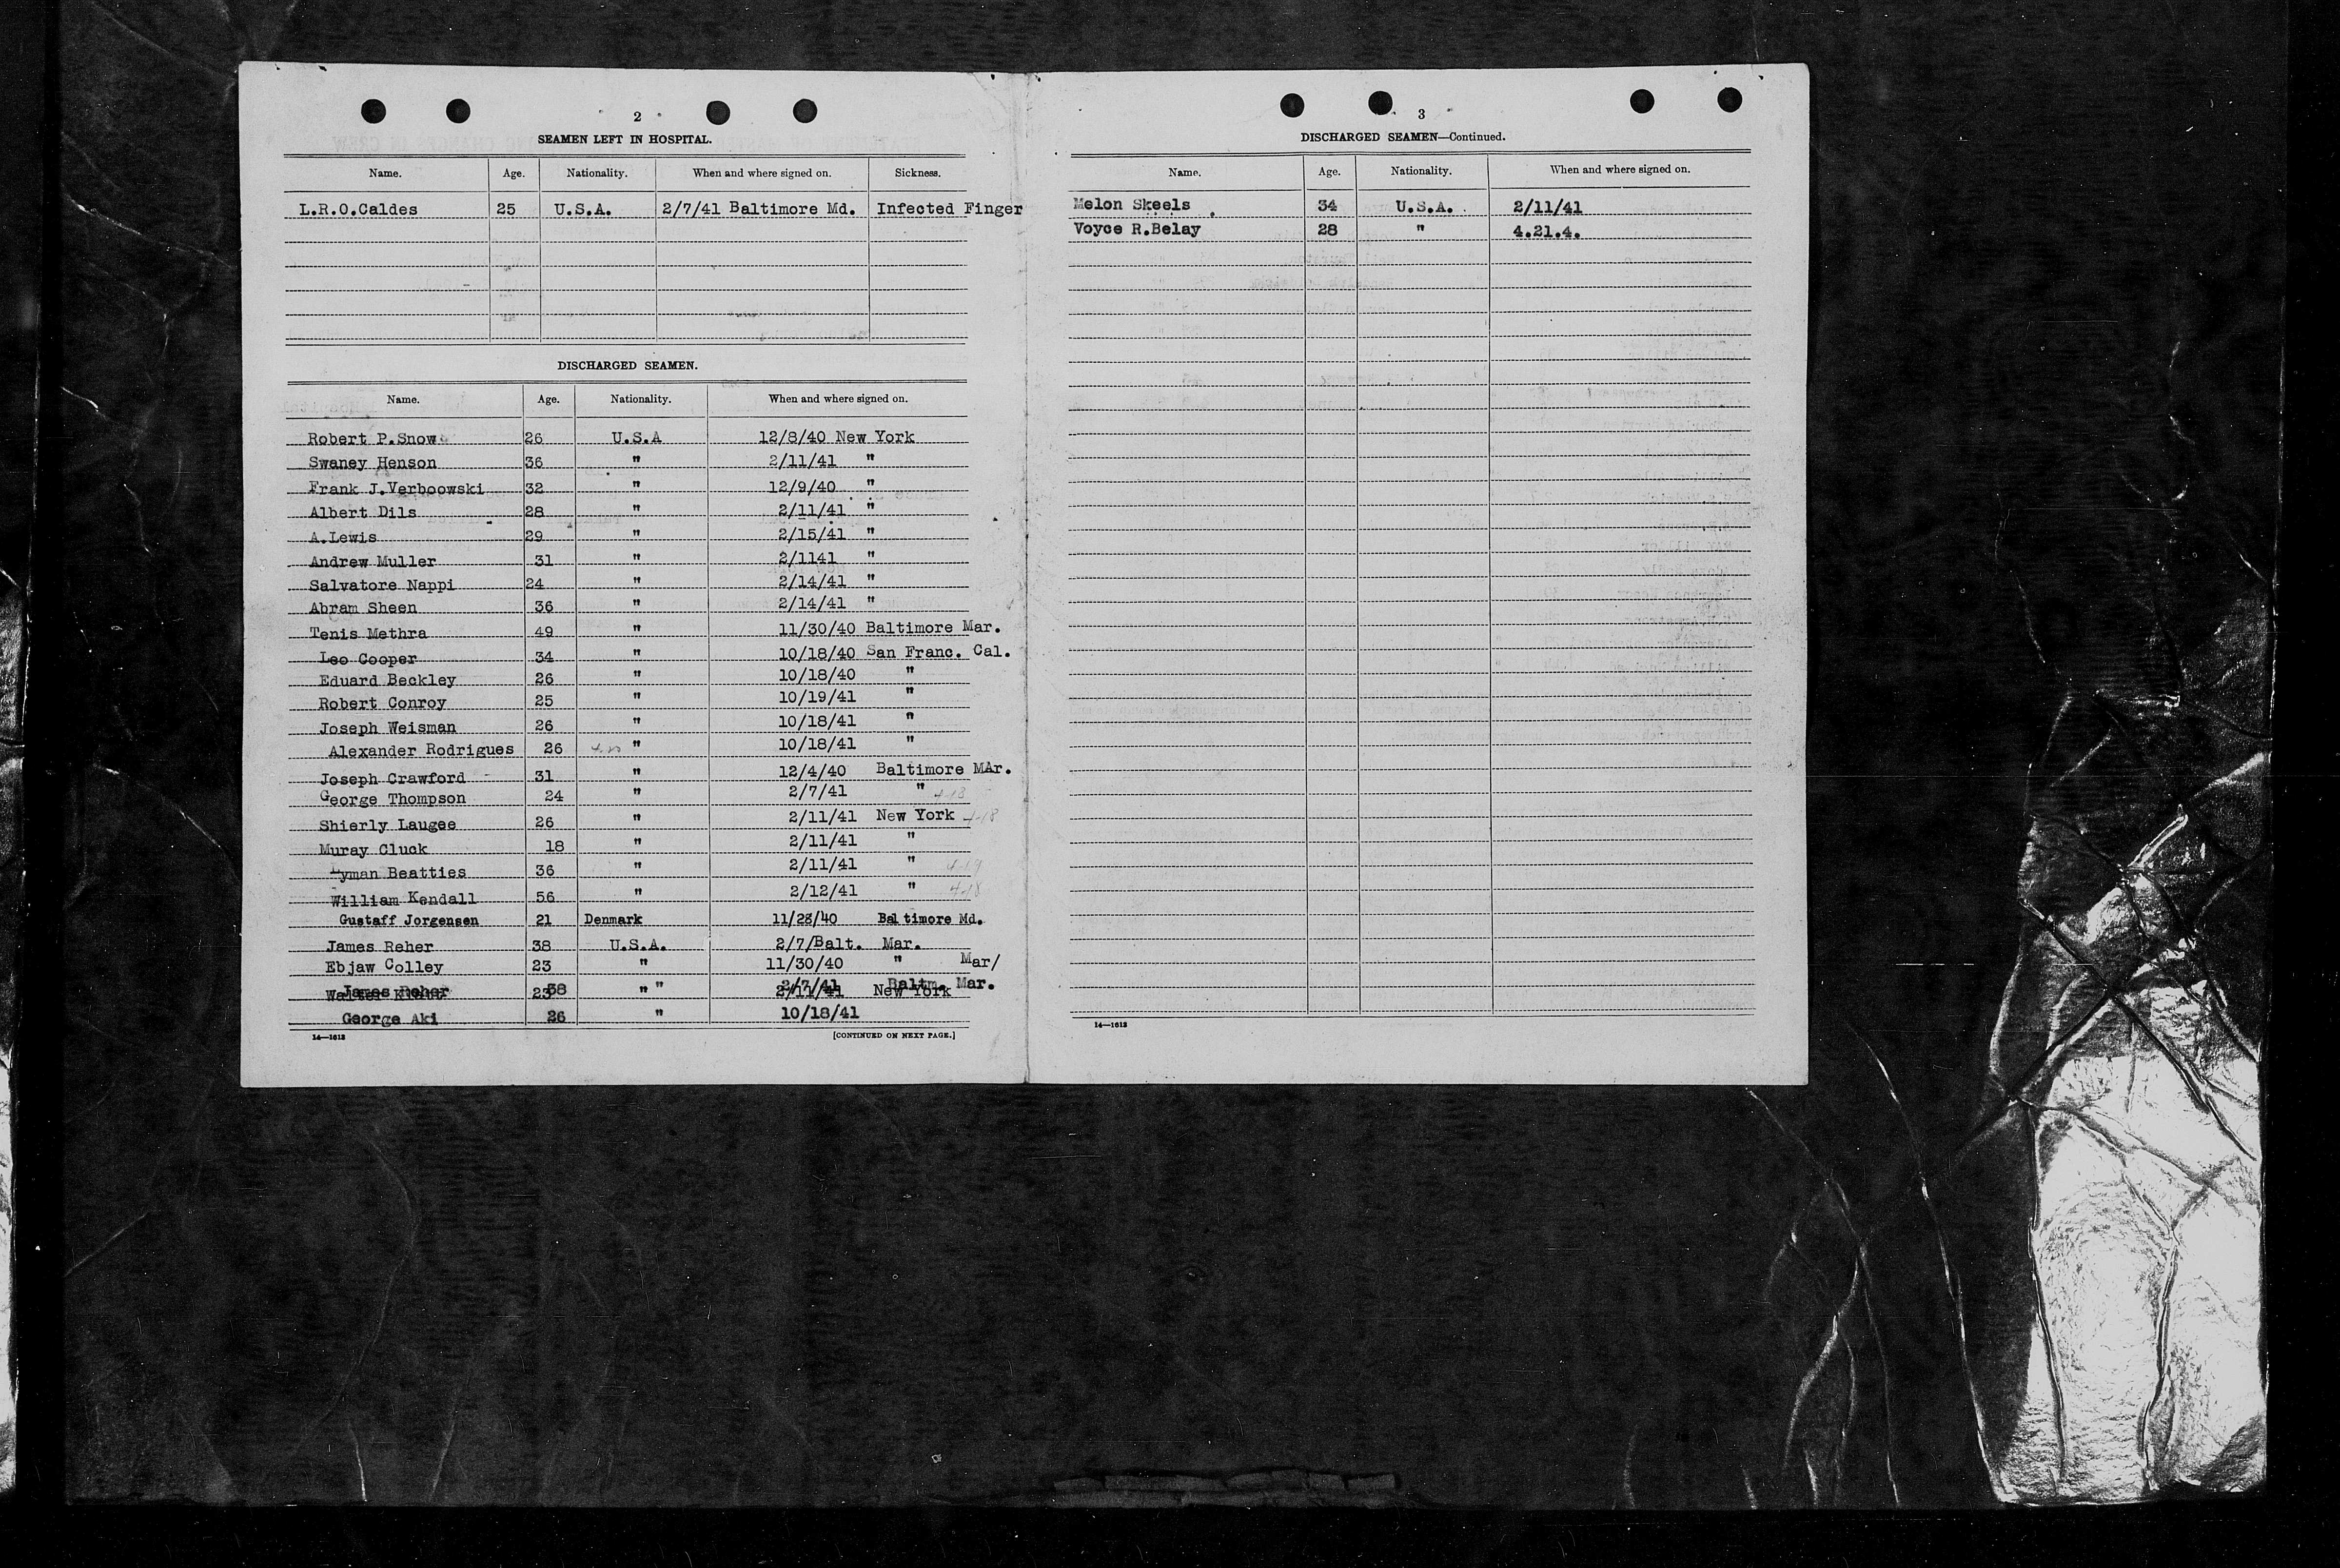 2
SEAMEN LEFT IN HOSPITAL.
Name. Age. Nationality. When and where signed on. Sickness.
L.R.O.Caldes 25 U.S.A. 2/7/41 Baltimore Md. Infected Finger
DISCHARGED SEAMEN.
Name. Age. Nationality. When and where signed on.
Robert P.Snow 26 U.S.A 12/8/40 New York
Swaney Henson 36 " 2/11/41 "
Frank J.Verboowski 32 " 12/9/40 "
Albert Dils 28 " 2/11/41 "
A.Lewis 29 " 2/15/41 "
Andrew Muller 31 " 2/1141 "
Salvatore Nappi 24 " 2/14/41 "
Abram Sheen 36 " 2/14/41 "
Tenis Methra 49 " 11/30/40 Baltimore Mar.
Leo Cooper 34 " 10/18/40 San Franc. Cal.
Eduard Beckley 26 " 10/18/40 "
Robert Conroy 25 " 10/19/41 "
Joseph Weisman 26 " 10/18/41 "
Alexander Rodrigues 26 " 10/18/41 "
Joseph Crawford 31 " 12/4/40 Baltimore MAr.
George Thompson 24 " 2/7/41 " 4-18
Shierly Laugee 26 " 2/11/41 New York 4-18
Muray Cluck 18 " 2/11/41 "
Lyman Beatties 36 " 2/11/41 " 4-19
William Kendall 56 " 2/12/41 " 4-18
Gustaff Jorgensen 21 Denmark 11/28/40 Baltimore Md.
James Reher 38 U.S.A. 2/7/Balt. Mar.
Ebjaw Colley 23 " 11/30/40 " Mar/
James Reher 38 " 2/7/41 Baltm. Mar.
23 " 2/11/41 New York
George Aki 26 " 10/18/41
14—1613 [CONTINUED ON NEXT PAGE.]
3
DISCHARGED SEAMEN—Continued.
Name. Age. Nationality. When and where signed on.
Melon Skeels 34 U.S.A. 2/11/41
Voyce R.Belay 28 " 4.21.4.
14—1613